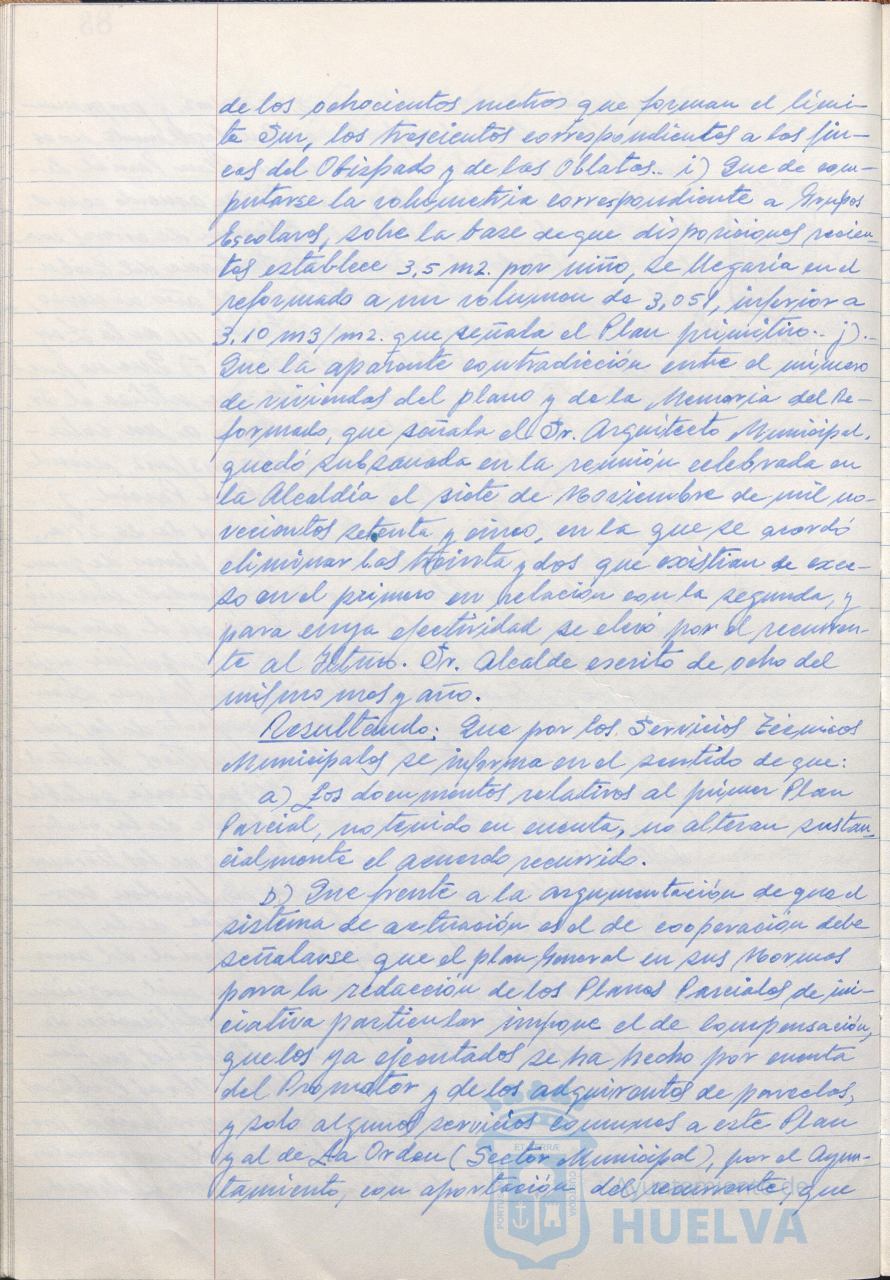 de los ochocientos metros que forman el lími-
te Sur, los trescientos correspondientes a las fin-
cas del Obispado y de las Oblatas.. i) Que de com-
putarse la volumetría correspondiente a Grupos
Escolares, sobre la base de que disposiciones recien-
tes establece 3,5 m2. por niño, se llegaría en el
reformado a un volumen de 3,051, inferior a
3,10 m3/m2. que señala el Plan primitivo.. j).-
Que la aparente contradicción entre el número
de viviendas del plano y de la Memoria del Re-
formado, que señala el Sr. Arquitecto Municipal,
quedó subsanada en la reunión celebrada en
la Alcaldía el siete de Noviembre de mil no-
vecientos setenta y cinco, en la que se acordó
eliminar las treinta y dos que existían de exce-
so en el primero en relación con la segunda, y
para cuya efectividad se elevó por el recurren-
te al Iltmo. Sr. Alcalde escrito de ocho del
mismo mes y año.
Resultando: Que por los Servicios Técnicos
Municipales se informa en el sentido de que:
a) Los documentos relativos al primer Plan
Parcial, no tenido en cuenta, no alteran sustan-
cialmente el acuerdo recurrido.
b) Que frente a la argumentación de que el
sistema de actuación es el de cooperación debe
señalarse que el plan General en sus Normas
para la redacción de los Planes Parciales de ini-
ciativa particular impone el de compensación,
que los ya ejecutados se ha hecho por cuenta
del Promotor y de los adquirentes de parcelas,
y solo algunos servicios comunes a este Plan
y al de La Orden (Sector Municipal), por el Ayun-
tamiento, con aportación del recurrente, que
Ayuntamiento de
HUELVA